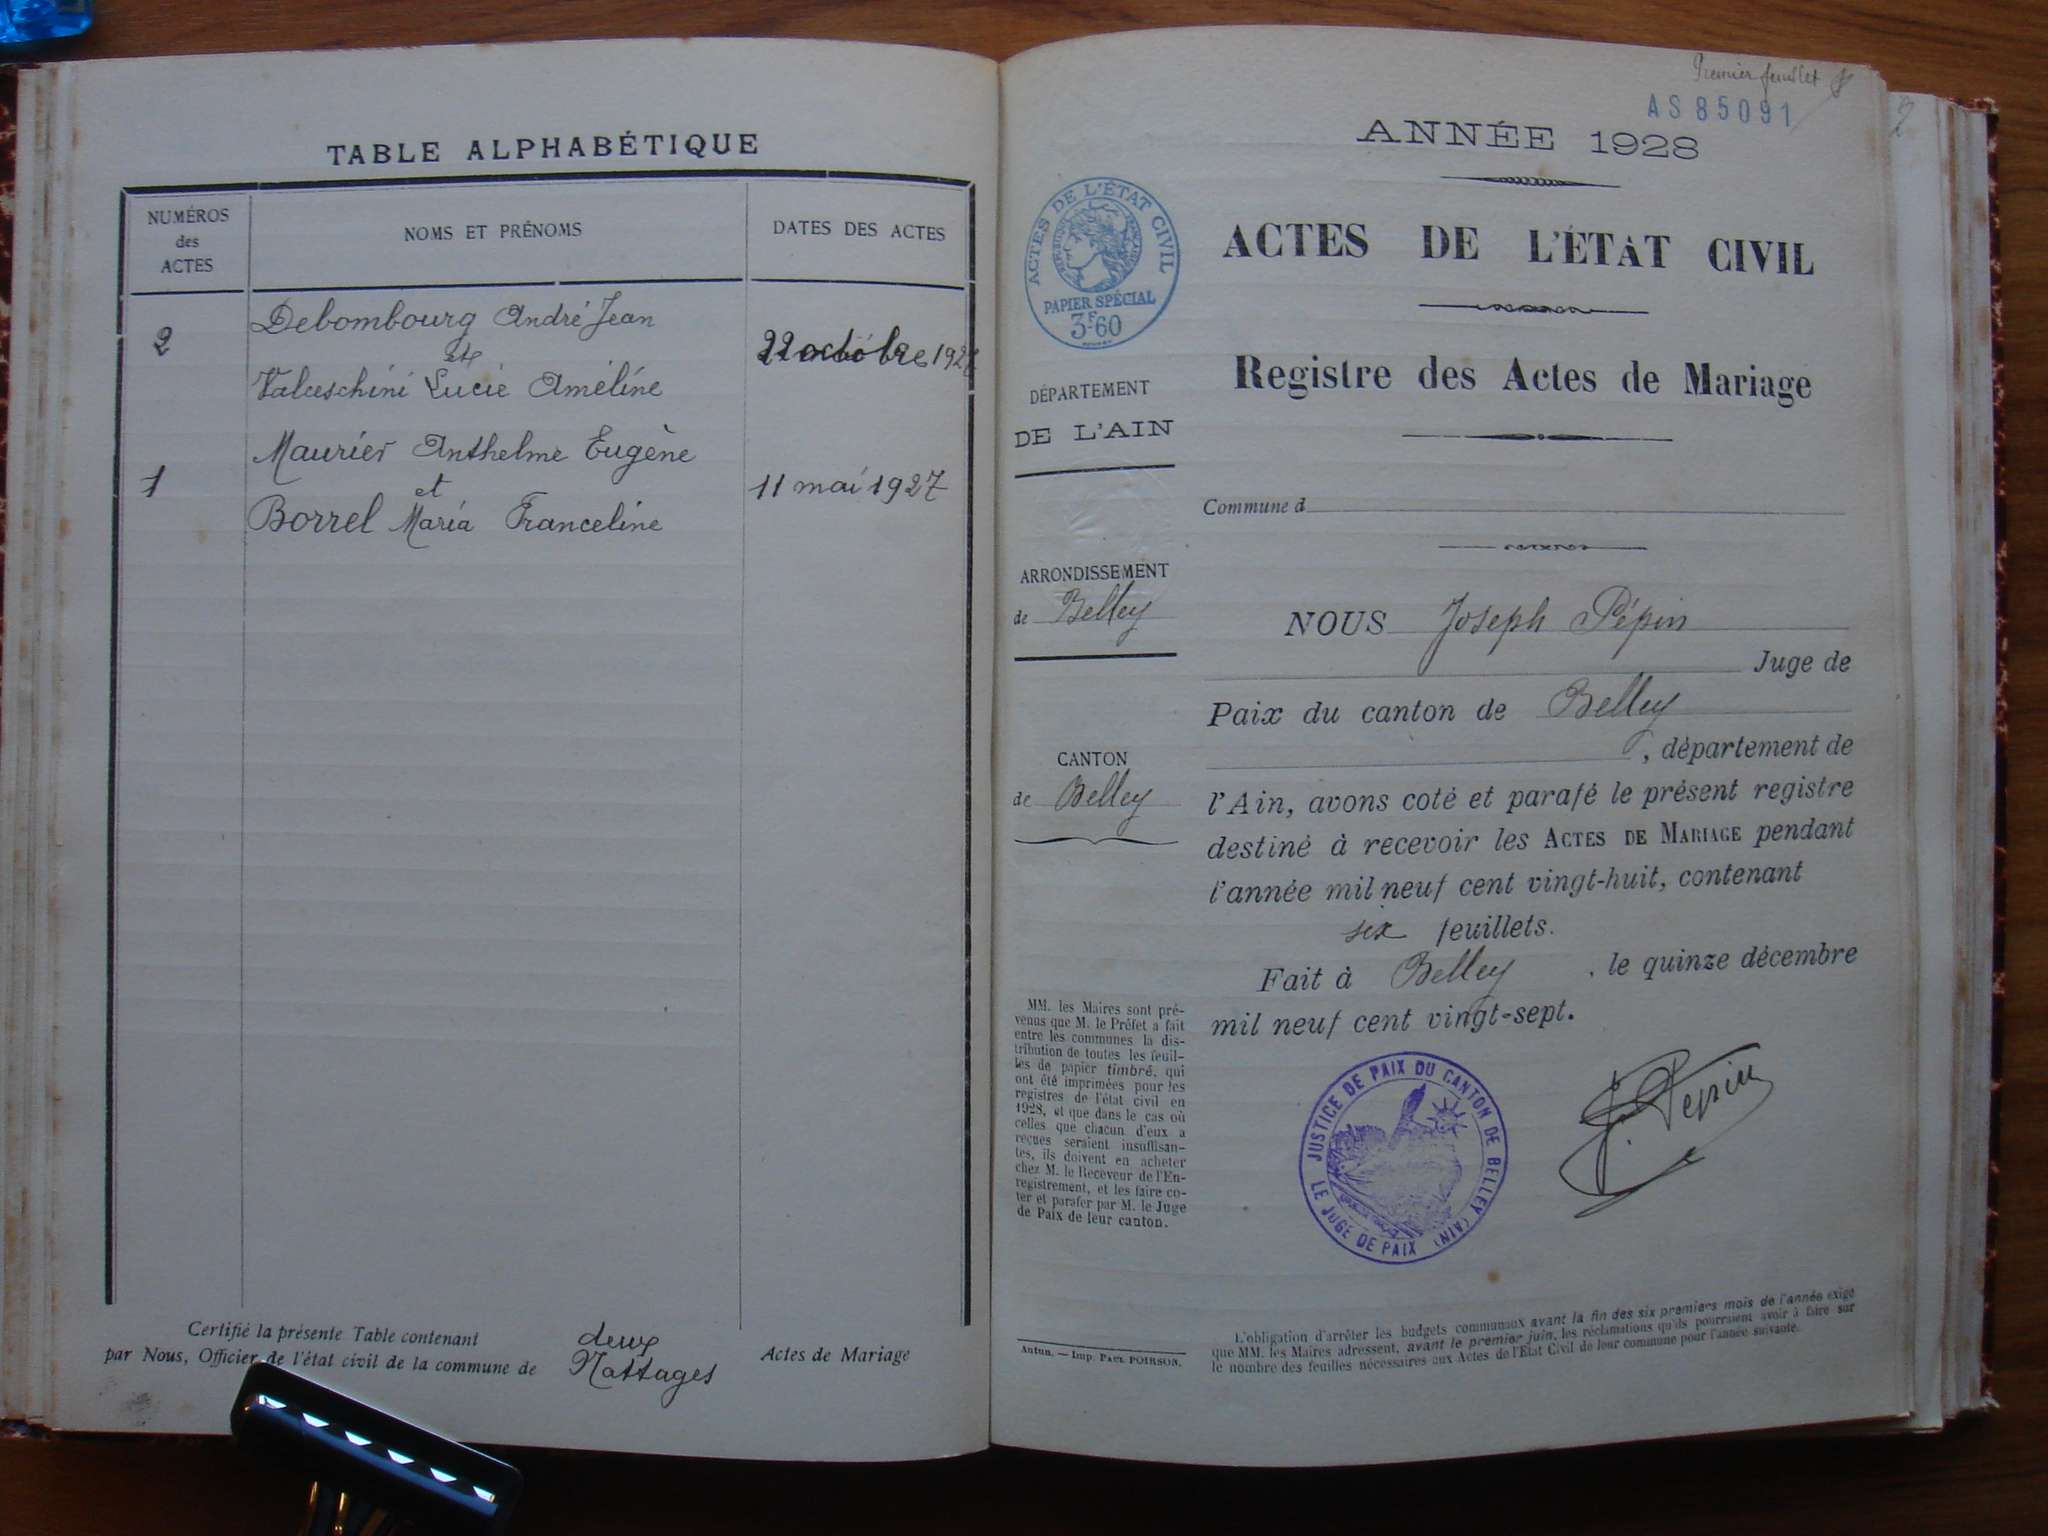 TABLE ALPHABÉTIQUE
NUMÉROS
des
ACTES
NOMS ET PRÉNOMS
DATES DES ACTES
Debombourg André Jean
2
et
22 octobre 1927
Valceschini Lucie Améline
Maurier Anthelme Eugène
1
et
11 mai 1927
Borrel Maria Franceline
Certifié la présente Table contenant deux Actes de Mariage
par Nous, Officier de l'état civil de la commune de Nattages
Premier feuillet
AS 85091
2
ANNÉE 1928
ACTES DE L'ÉTAT CIVIL
RÉPUBLIQUE FRANÇAISE
PAPIER SPÉCIAL
3F60
ACTES DE L'ÉTAT CIVIL
Registre des Actes de Mariage
DÉPARTEMENT
DE L'AIN
Commune d
ARRONDISSEMENT
de Belley
CANTON
de Belley
NOUS Joseph Pépin
Juge de
Paix du canton de Belley
, département de
l'Ain, avons coté et parafé le présent registre
destiné à recevoir les ACTES DE MARIAGE pendant
l'année mil neuf cent vingt-huit, contenant
six feuillets.
Fait à Belley, le quinze décembre
mil neuf cent vingt-sept.
MM. les Maires sont pré-
venus que M. le Préfet a fait
entre les communes la dis-
tribution de toutes les feuil-
les de papier timbré, qui
ont été imprimées pour les
registres de l'état civil en
1928, et que dans le cas où
celles que chacun d'eux a
reçues seraient insuffisan-
tes, ils doivent en acheter
chez M. le Receveur de l'En-
registrement, et les faire co-
ter et parafer par M. le Juge
de Paix de leur canton.
JUSTICE DE PAIX DU CANTON DE BELLEY (AIN)
LE JUGE DE PAIX
J. Pépin
Autun. — Imp. PAUL POIRSON.
L'obligation d'arrêter les budgets communaux avant la fin des six premiers mois de l'année exige
que MM. les Maires adressent, avant le premier juin, les réclamations qu'ils pourraient avoir à faire sur
le nombre des feuilles nécessaires aux Actes de l'Etat Civil de leur commune pour l'année suivante.